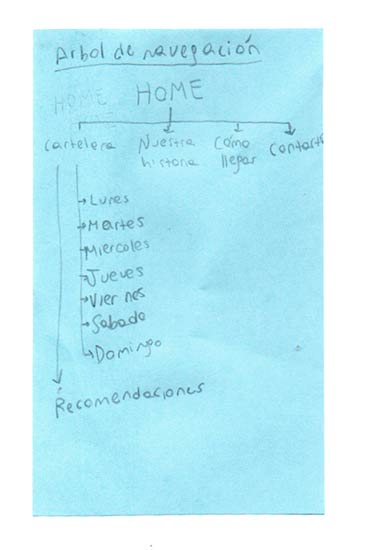 Arbol de navegación
HOME HOME
Cartelera Nuestra historia Cómo llegar Contacto
Lunes
Martes
Miercoles
Jueves
Viernes
Sabado
Domingo
Recomendaciones